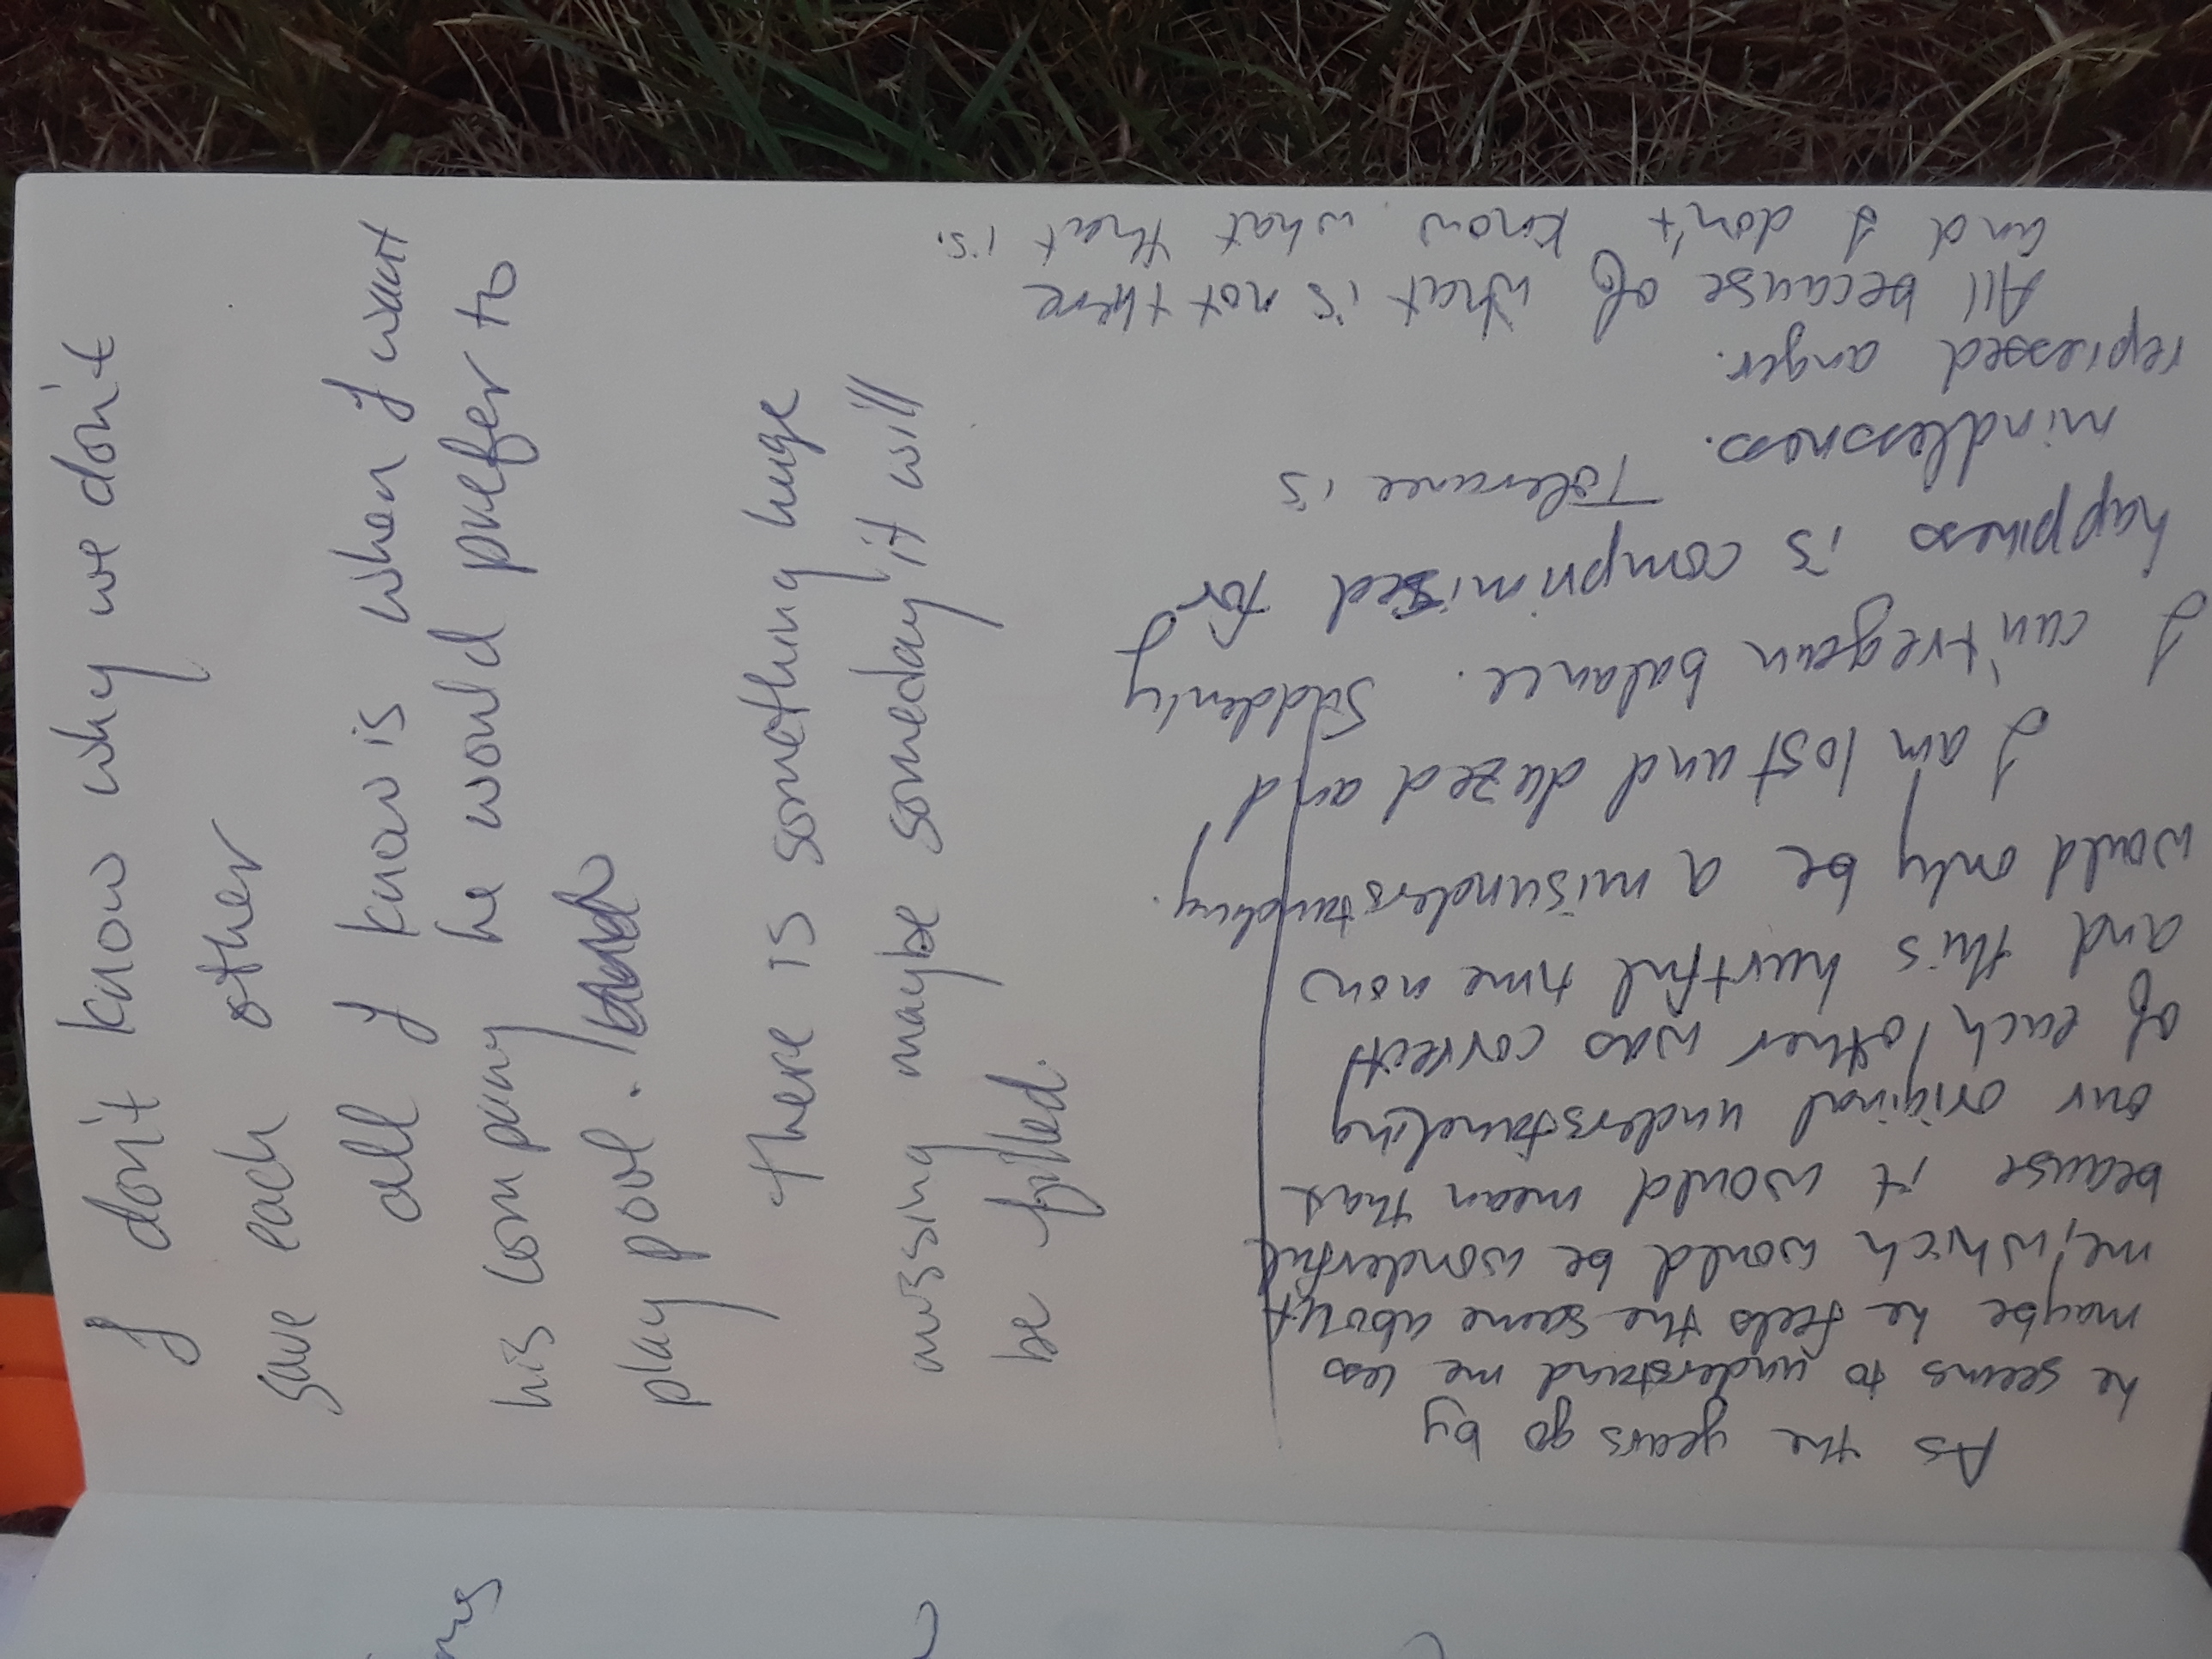 I don't know why we don't
save each other
all I know is when I want
his company he would prefer to
play pool.
There is something huge
missing maybe someday it will
be filled.
As the years go by
he seems to understand me less
maybe he feels the same about
me, which would be wonderful
because it would mean that
our original understanding
of each other was correct
and this hurtful time now
would only be a misunderstanding.
I am lost and dazed and
I can't regain balance. Suddenly
happiness is comprimised for
mindlessness. Tolerance is
repressed anger.
All because of what is not there
and I don't know what that is.